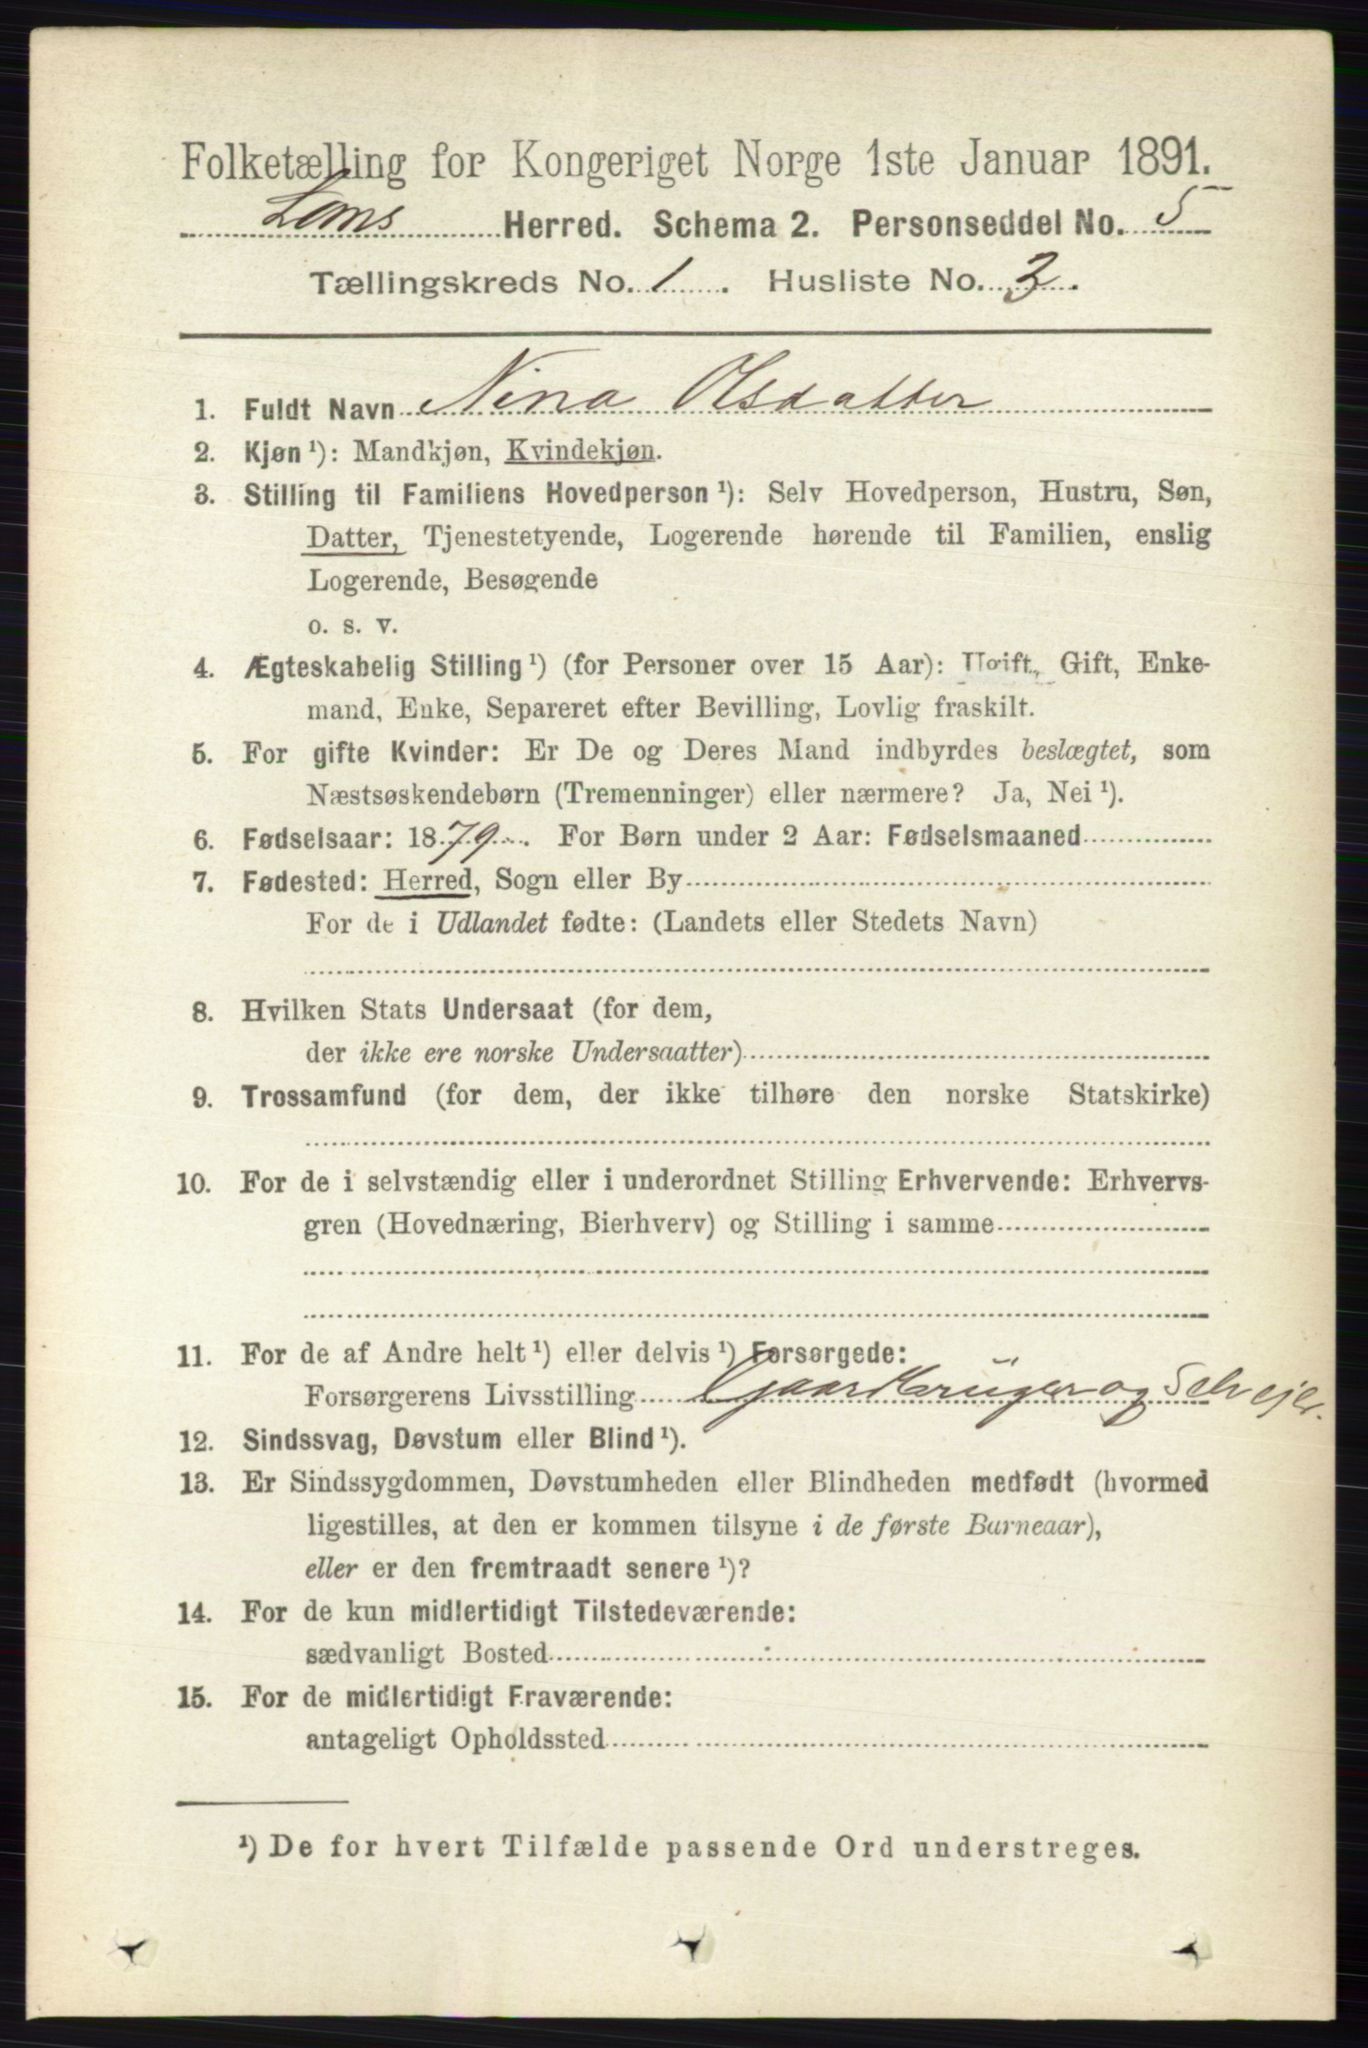 Folketælling for Kongeriget Norge 1ste Januar 1891.
Loms Herred. Schema 2. Personseddel No. 5
Tællingskreds No. 1. Husliste No. 3.
1. Fuldt Navn Nina Olsdatter
2. Kjøn ¹): Mandkjøn, Kvindekjøn.
3. Stilling til Familiens Hovedperson ¹): Selv Hovedperson, Hustru, Søn,
Datter, Tjenestetyende, Logerende hørende til Familien, enslig
Logerende, Besøgende
o. s. v.
4. Ægteskabelig Stilling ¹) (for Personer over 15 Aar): Ugift, Gift, Enke-
mand, Enke, Separeret efter Bevilling, Lovlig fraskilt.
5. For gifte Kvinder: Er De og Deres Mand indbyrdes beslægtet, som
Næstsøskendebørn (Tremenninger) eller nærmere? Ja, Nei ¹).
6. Fødselsaar: 1879. For Børn under 2 Aar: Fødselsmaaned
7. Fødested: Herred, Sogn eller By
For de i Udlandet fødte: (Landets eller Stedets Navn)
8. Hvilken Stats Undersaat (for dem,
der ikke ere norske Undersaatter)
9. Trossamfund (for dem, der ikke tilhøre den norske Statskirke)
10. For de i selvstændig eller i underordnet Stilling Erhvervende: Erhvervs-
gren (Hovednæring, Bierhverv) og Stilling i samme
11. For de af Andre helt ¹) eller delvis ¹) Forsørgede:
Forsørgerens Livsstilling Gaardbrüger og Selvejer.
12. Sindssvag, Døvstum eller Blind ¹).
13. Er Sindssygdommen, Døvstumheden eller Blindheden medfødt (hvormed
ligestilles, at den er kommen tilsyne i de første Barneaar),
eller er den fremtraadt senere ¹)?
14. For de kun midlertidigt Tilstedeværende:
sædvanligt Bosted
15. For de midlertidigt Fraværende:
antageligt Opholdssted
¹) De for hvert Tilfælde passende Ord understreges.